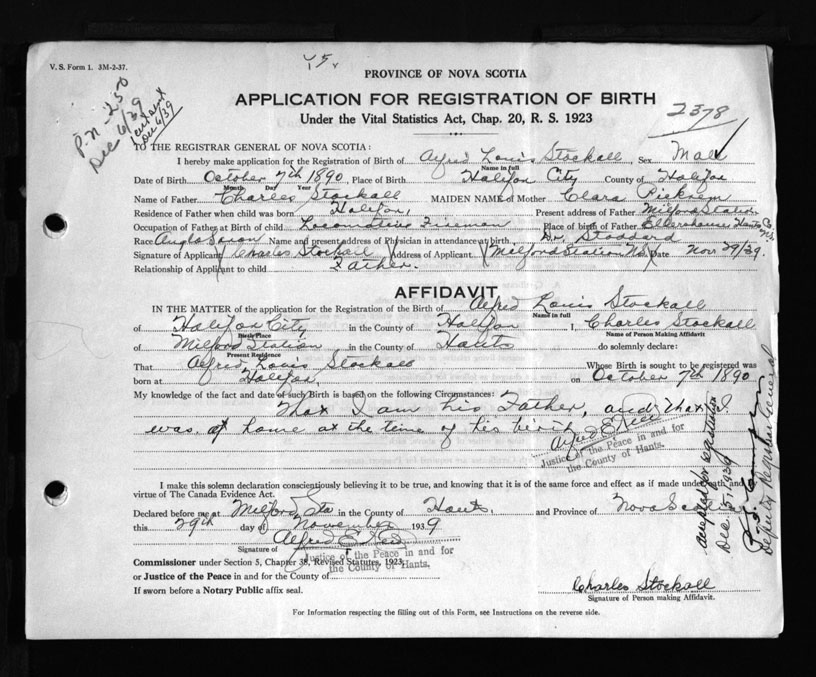 V. S. Form 1. 3M-2-37.
P.N-250
Dec 6/39
Dec 6/39
PROVINCE OF NOVA SCOTIA
APPLICATION FOR REGISTRATION OF BIRTH
2378
Under the Vital Statistics Act, Chap. 20, R. S. 1923
TO THE REGISTRAR GENERAL OF NOVA SCOTIA:
I hereby make application for the Registration of Birth of Alfred Louis Stockall, Sex Male
Name in full
Date of Birth October 7th 1890, Place of Birth Halifax City County of Halifax
Month Day Year
Name of Father Charles Stockall MAIDEN NAME of Mother Clara
Residence of Father when child was born Halifax, Present address of Father Milford Station
Occupation of Father at Birth of child Locomotive Fireman Place of birth of Father Ellershouse Hants Co. N.S.
Race Anglo Saxon Name and present address of Physician in attendance at birth, Dr. Stoddard
Signature of Applicant Charles Stockall Address of Applicant Milford Station N.S. Date Nov 29/39.
Relationship of Applicant to child Father.
AFFIDAVIT
IN THE MATTER of the application for the Registration of the Birth of Alfred Louis Stockall
Name in full
of Halifax City in the County of Halifax I, Charles Stockall
Birth Place Name of Person Making Affidavit
of Milford Station in the County of Hants do solemnly declare:
Present Residence
That Alfred Louis Stockall Whose Birth is sought to be registered was
born at Halifax, on October 7th 1890
My knowledge of the fact and date of such Birth is based on the following Circumstances:
That I am his Father, and that I
was at home at the time of his birth
Alfred E
Justice of the Peace in and for
the County of Hants.
I make this solemn declaration conscientiously believing it to be true, and knowing that it is of the same force and effect as if made under oath and
virtue of The Canada Evidence Act.
Declared before me at Milford Sta in the County of Hants, and Province of Nova Scotia
this 29th day of November 1939
Alfred E
Signature of
Justice of the Peace in and for
the County of Hants.
Commissioner under Section 5, Chapter 38, Revised Statutes, 1923
or Justice of the Peace in and for the County of
If sworn before a Notary Public affix seal.
Charles Stockall
Signature of Person making Affidavit.
For Information respecting the filling out of this Form, see Instructions on the reverse side.
Accepted for registration
Dec 15, 1939
Deputy Registrar General